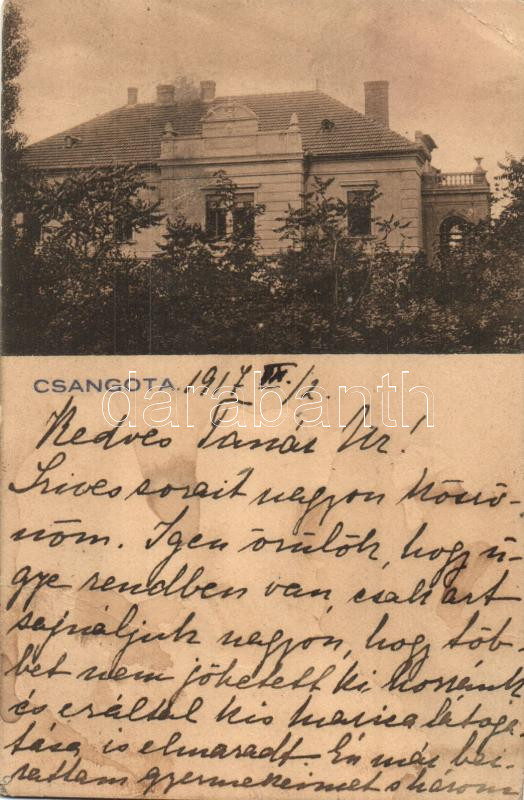 CSANGOTA. 1917 VII./2.
darabanth
Kedves Tanár Úr!
Szives sorait nagyon köszö-
nöm. Igen örülök, hogy ü-
gye rendben van, csak azt
sajnáljuk nagyon, hogy töb-
bet nem jöhetett ki hozzánk
és ezáltal kis Marica látoga-
tása is elmaradt. Én már bei-
rattam gyermekeimet s három